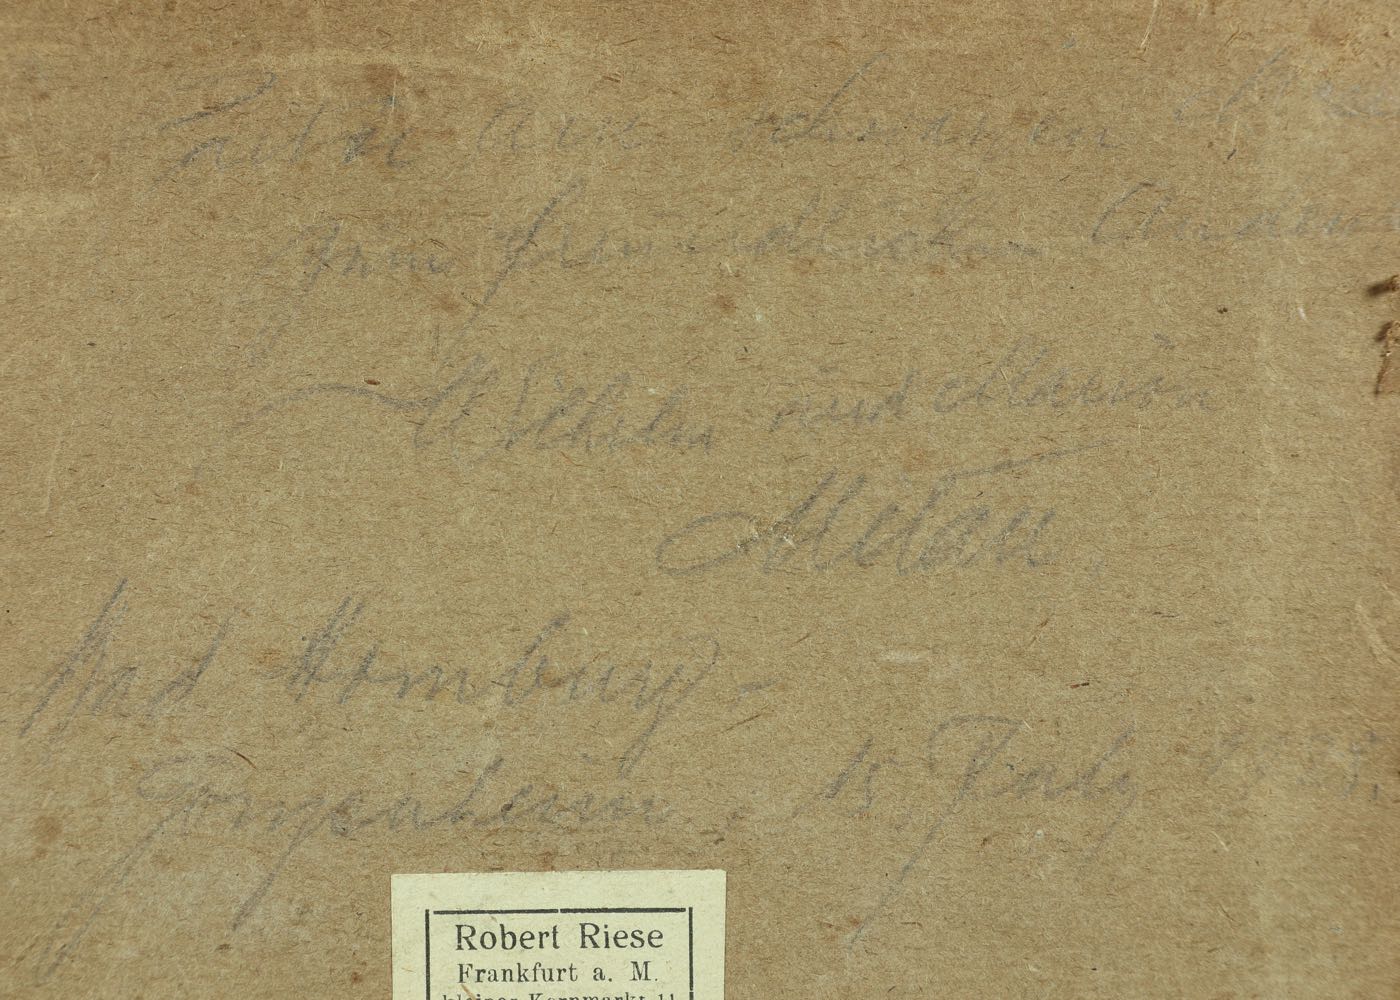 Partie am schwarzen
zum freundlichen Anden
Wilhelm und Marion
Milau.
Bad Homburg-
Gonzenheim, 15. July
Robert Riese
Frankfurt a. M.
kleiner Kornmarkt 11